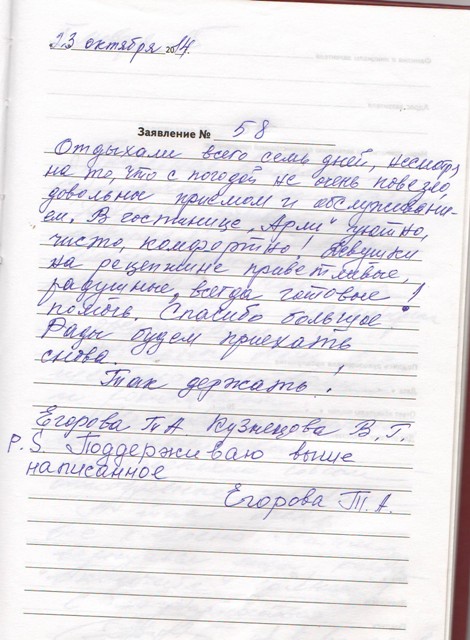 23 октября 2014.
Заявление № 58
Отдыхали всего семь дней, несмотря
на то, что с погодой не очень повезло,
довольны приемом и обслуживани-
ем. В гостинице „Арли" уютно,
чисто, комфортно! Девушки
на рецепшине приветливые,
радушные, всегда готовые
помочь. Спасибо большое!
Рады будем приехать
снова.
Так держать!
Егорова Т.А. Кузнецова В.Г.
P.S. Поддерживаю выше
написанное
Егорова Т.А.